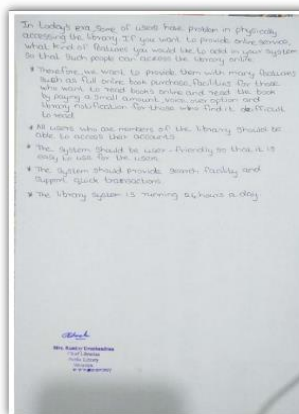 In today's era, some of users have problem in physically
accessing the library. If you want to provide online service,
what kind of features you would like to add in your system
so that such people can access the library online
* Therefore, we want to provide them with many features
such as full online book purchase, facilities for those
who want to read books online and read the book
by paying a small amount, voice over option and
library notification for those who find it difficult
to read
* All users who are members of the library should be
able to access their accounts
* The system should be user-friendly so that it is
easy to use for the users
* The system should provide search facility and
support quick transactions
* The library system is running 24 hours a day
Chief Librarian
Public Library